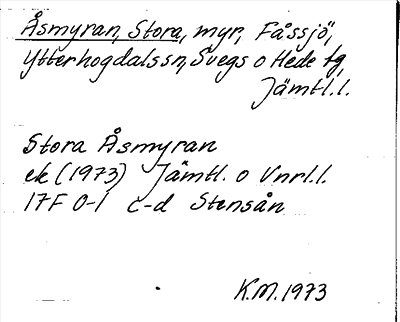 Åsmyran, Stora, myr, Fåssjö,
Ytterhogdals sn, Svegs o Hede tg,
Jämtl. l.
Stora Åsmyran
ek (1973) Jämtl. o Vnrl. l.
17F 0-1 c-d Stensån
K.M. 1973